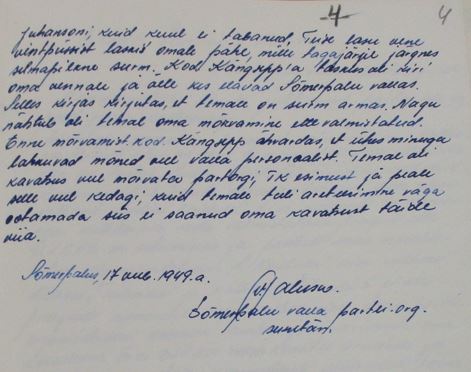 -4- 4
Juhansoni, kuid kuul ei tabanud. Tule lasu vene
vintpüssist lasnis omale pähe, mille tagajärjel järgnes
silmapilkne surm. Kod. Kängsepp'a taskus oli kiri
oma vennale ja õlle kes elavad Sõmerpalu vallas.
Selles kirjas kirjutas, et temale on surm armas. Nagu
nähtub oli temal oma mõrvamine ette valmistatud.
Enne mõrvamist kod. Kängsepp ähvardas, et ühes minuga
lahkuvad mõned veel valla personaalist. Temal oli
kavatsus veel mõrvata partorgi, TK esimest ja peale
selle veel kedagi, kuid temale tuli areteerimine väga
ootamata siis ei saanud oma kavatsust täide
viia.
Sõmerpalus, 17 1949.a.
Sõmerpalu valla partei-org.
sekretär.